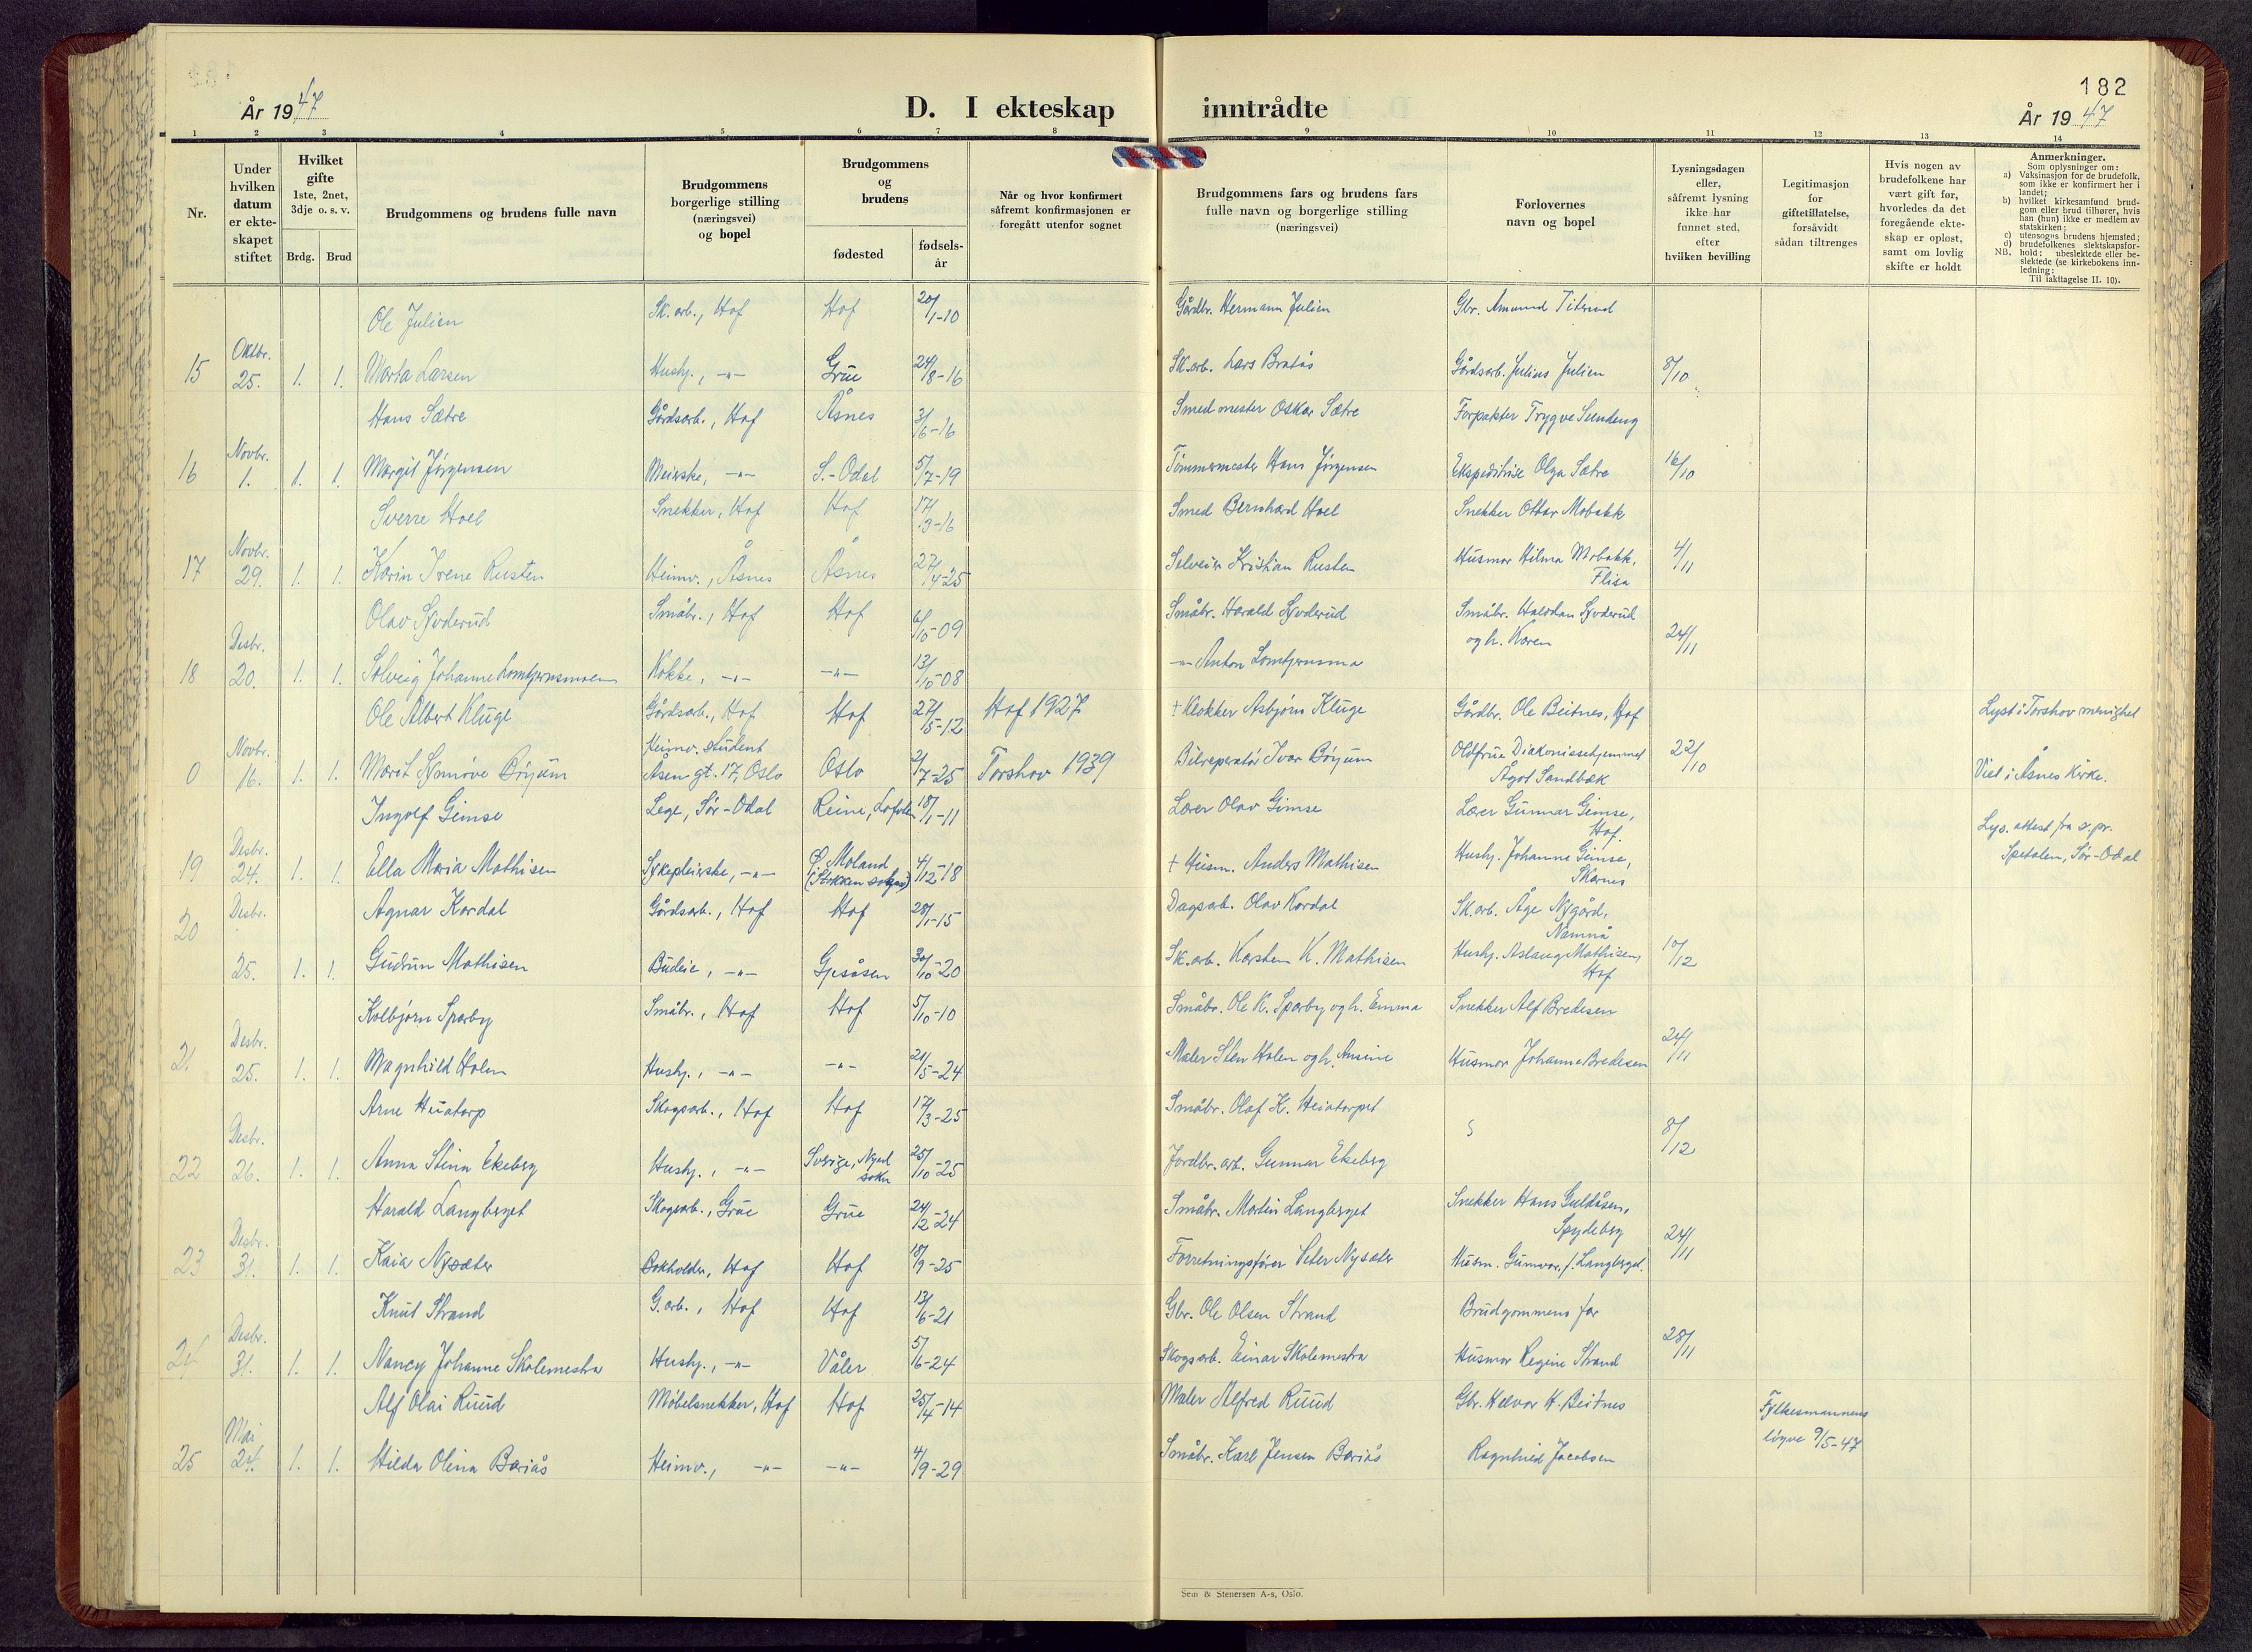 182
År 1947
D. I ekteskap inntrådte
År 1947
1 2 3 4 5 6 7 8 9 10 11 12 13 14
Nr.
Under hvilken datum er ekte-skapet stiftet
Hvilket gifte 1ste, 2net, 3dje o. s. v.
Brdg. Brud
Brudgommens og brudens fulle navn
Brudgommens borgerlige stilling (næringsvei) og bopel
Brudgommens og brudens
fødested
fødsels-år
Når og hvor konfirmert såfremt konfirmasjonen er foregått utenfor sognet
Brudgommens fars og brudens fars fulle navn og borgerlige stilling (næringsvei)
Forlovernes navn og bopel
Lysningsdagen eller, såfremt lysning ikke har funnet sted, efter hvilken bevilling
Legitimasjon for giftetillatelse, forsåvidt sådan tiltrenges
Hvis nogen av brudefolkene har vært gift før, hvorledes da det foregående ekte-skap er opløst, samt om lovlig skifte er holdt
Anmerkninger.
Som oplysninger om:
a) Vaksinasjon for de brudefolk, som ikke er konfirmert her i landet;
b) hvilket kirkesamfund brud-gom eller brud tilhører, hvis han (hun) ikke er medlem av statskirken;
c) utensogns brudens hjemsted;
d) brudefolkenes slektskapsfor-hold: ubeslektede eller be-slektede (se kirkebokens inn-ledning:
NB. Til iakttagelse II. 10).
Ole Julien Sk. arb., Hof Hof 20/1-10 Gårdbr. Hermann Julien Gbr. Amund
15 Oktbr. 25. 1. 1. Marta Larsen Hushj., -"- Grue 24/8-16 Sk. arb. Lars Bratås Gårdsarb. Julius Julien 8/10
Hans Sætre Gårdsarb., Hof Åsnes 3/6-16 Smedmester Oskar Sætre Forpakter Trygve Sundeng
16 Novbr. 1. 1. 1. Margit Jørgensen Meierske, -"- S.-Odal 5/7-19 Tømmermester Hans Jørgensen Ekspeditrise Olga Sætre 16/10
Sverre Hoel Snekker, Hof Hof 17/3-16 Smed Bernhard Hoel Snekker Ottar Mobakk
17 Novbr. 29. 1. 1. Karin Irene Rusten Heimv., Åsnes Åsnes 27/4-25 Selveier Kristian Rusten Husmor Hilma Mobakk, Flisa 4/11
Olav Syverud Småbr., Hof Hof 6/10-09 Småbr. Harald Syverud Småbr. Halvdan Syverud og h. Karen
18 Desbr. 20. 1. 1. Solveig Johanne Lomtjernsmoen Kokke, -"- -"- 13/10-08 -"- Anton Lomtjernsmo 24/11
Ole Albert Kluge Gårdsarb., Hof Hof 27/5-12 Hof 1927 † Klokker Asbjørn Kluge Gårdbr. Ole Beitnes, Hof Lyst i Torshov menighet
0 Novbr. 16. 1. 1. Marit Synnøve Bøyum Heimv. student Åsengt. 17, Oslo Oslo 2/7-25 Torshov 1939 Bilreparatør Ivar Bøyum Oldfrue Diakonissehjemmet Ågot Sandbæk 22/10 Viet i Åsnes kirke.
Ingolf Gimse Lege, Sør-Odal Reine, Lofoten 18/1-11 Lærer Olav Gimse Lærer Gunnar Gimse, Hof. Lys. attest fra s. pr. Spetalen, Sør-Odal
19 Desbr. 24. 1. 1. Ella Maria Mathisen Sykepleierske, -"- Ø. Moland (Stokken sogn) 4/12-18 † Husm. Anders Mathisen Hushj. Johanne Gimse, Skarnes
20 Desbr. Agnar Kordal Gårdsarb., Hof Hof 28/1-15 Dagsarb. Olav Kordal Sk. arb. Åge Nygård, Namnå
25. 1. 1. Gudrun Mathisen Budeie, -"- Gjesåsen 30/10-20 Sk. arb. Karsten K. Mathisen Hushj. Aslaug Mathisen, Hof 10/12
Kolbjørn Sparby Småbr., Hof Hof 5/10-10 Småbr. Ole K. Sparby og h. Emma Snekker Alf Bredesen
21 Desbr. 25. 1. 1. Magnhild Holen Hushj., -"- -"- 21/5-24 Maler Sten Holen og h. Ansine Husmor Johanne Bredesen 24/11
Arne Heiatorp Skogsarb., Hof Hof 17/3-25 Småbr. Olaf K. Heiatorpet
22 Desbr. 26. 1. 1. Anna Stina Ekeberg Hushj., -"- Sverige, Nyed sokn 25/10-25 Jordbr. arb. Gunnar Ekeberg 8/12
Harald Langberget Skogsarb., Grue Grue 24/12-24 Småbr. Martin Langberget Snekker Hans Guldåsen, Spydeberg
23 Desbr. 31. 1. 1. Kaia Nysæter Bokholder, Hof Hof 18/9-25 Forretningsfører Peter Nysæter Husm. Gunvor, f. Langberget. 24/11
Knut Strand G. arb., Hof Hof 13/6-21 Gbr. Ole Olsen Strand Brudgommens far
24 Desbr. 31. 1. 1. Nancy Johanne Skolemestra Hushj., -"- Våler 5/6-24 Skogsarb. Einar Skolemestra Husmor Regine Strand 28/11
Alf Olai Ruud Møbelsnekker, Hof Hof 25/4-14 Maler Alfred Ruud Gbr. Halvor H. Beitnes Fylkesmannens løyve 9/5-47
25 Mai 24. 1. 1. Hilda Olina Bariås Heimv., -"- -"- 4/9-29 Småbr. Karl Jensen Bariås Ragnhild Jacobsen
Sem & Stenersen A-s, Oslo.